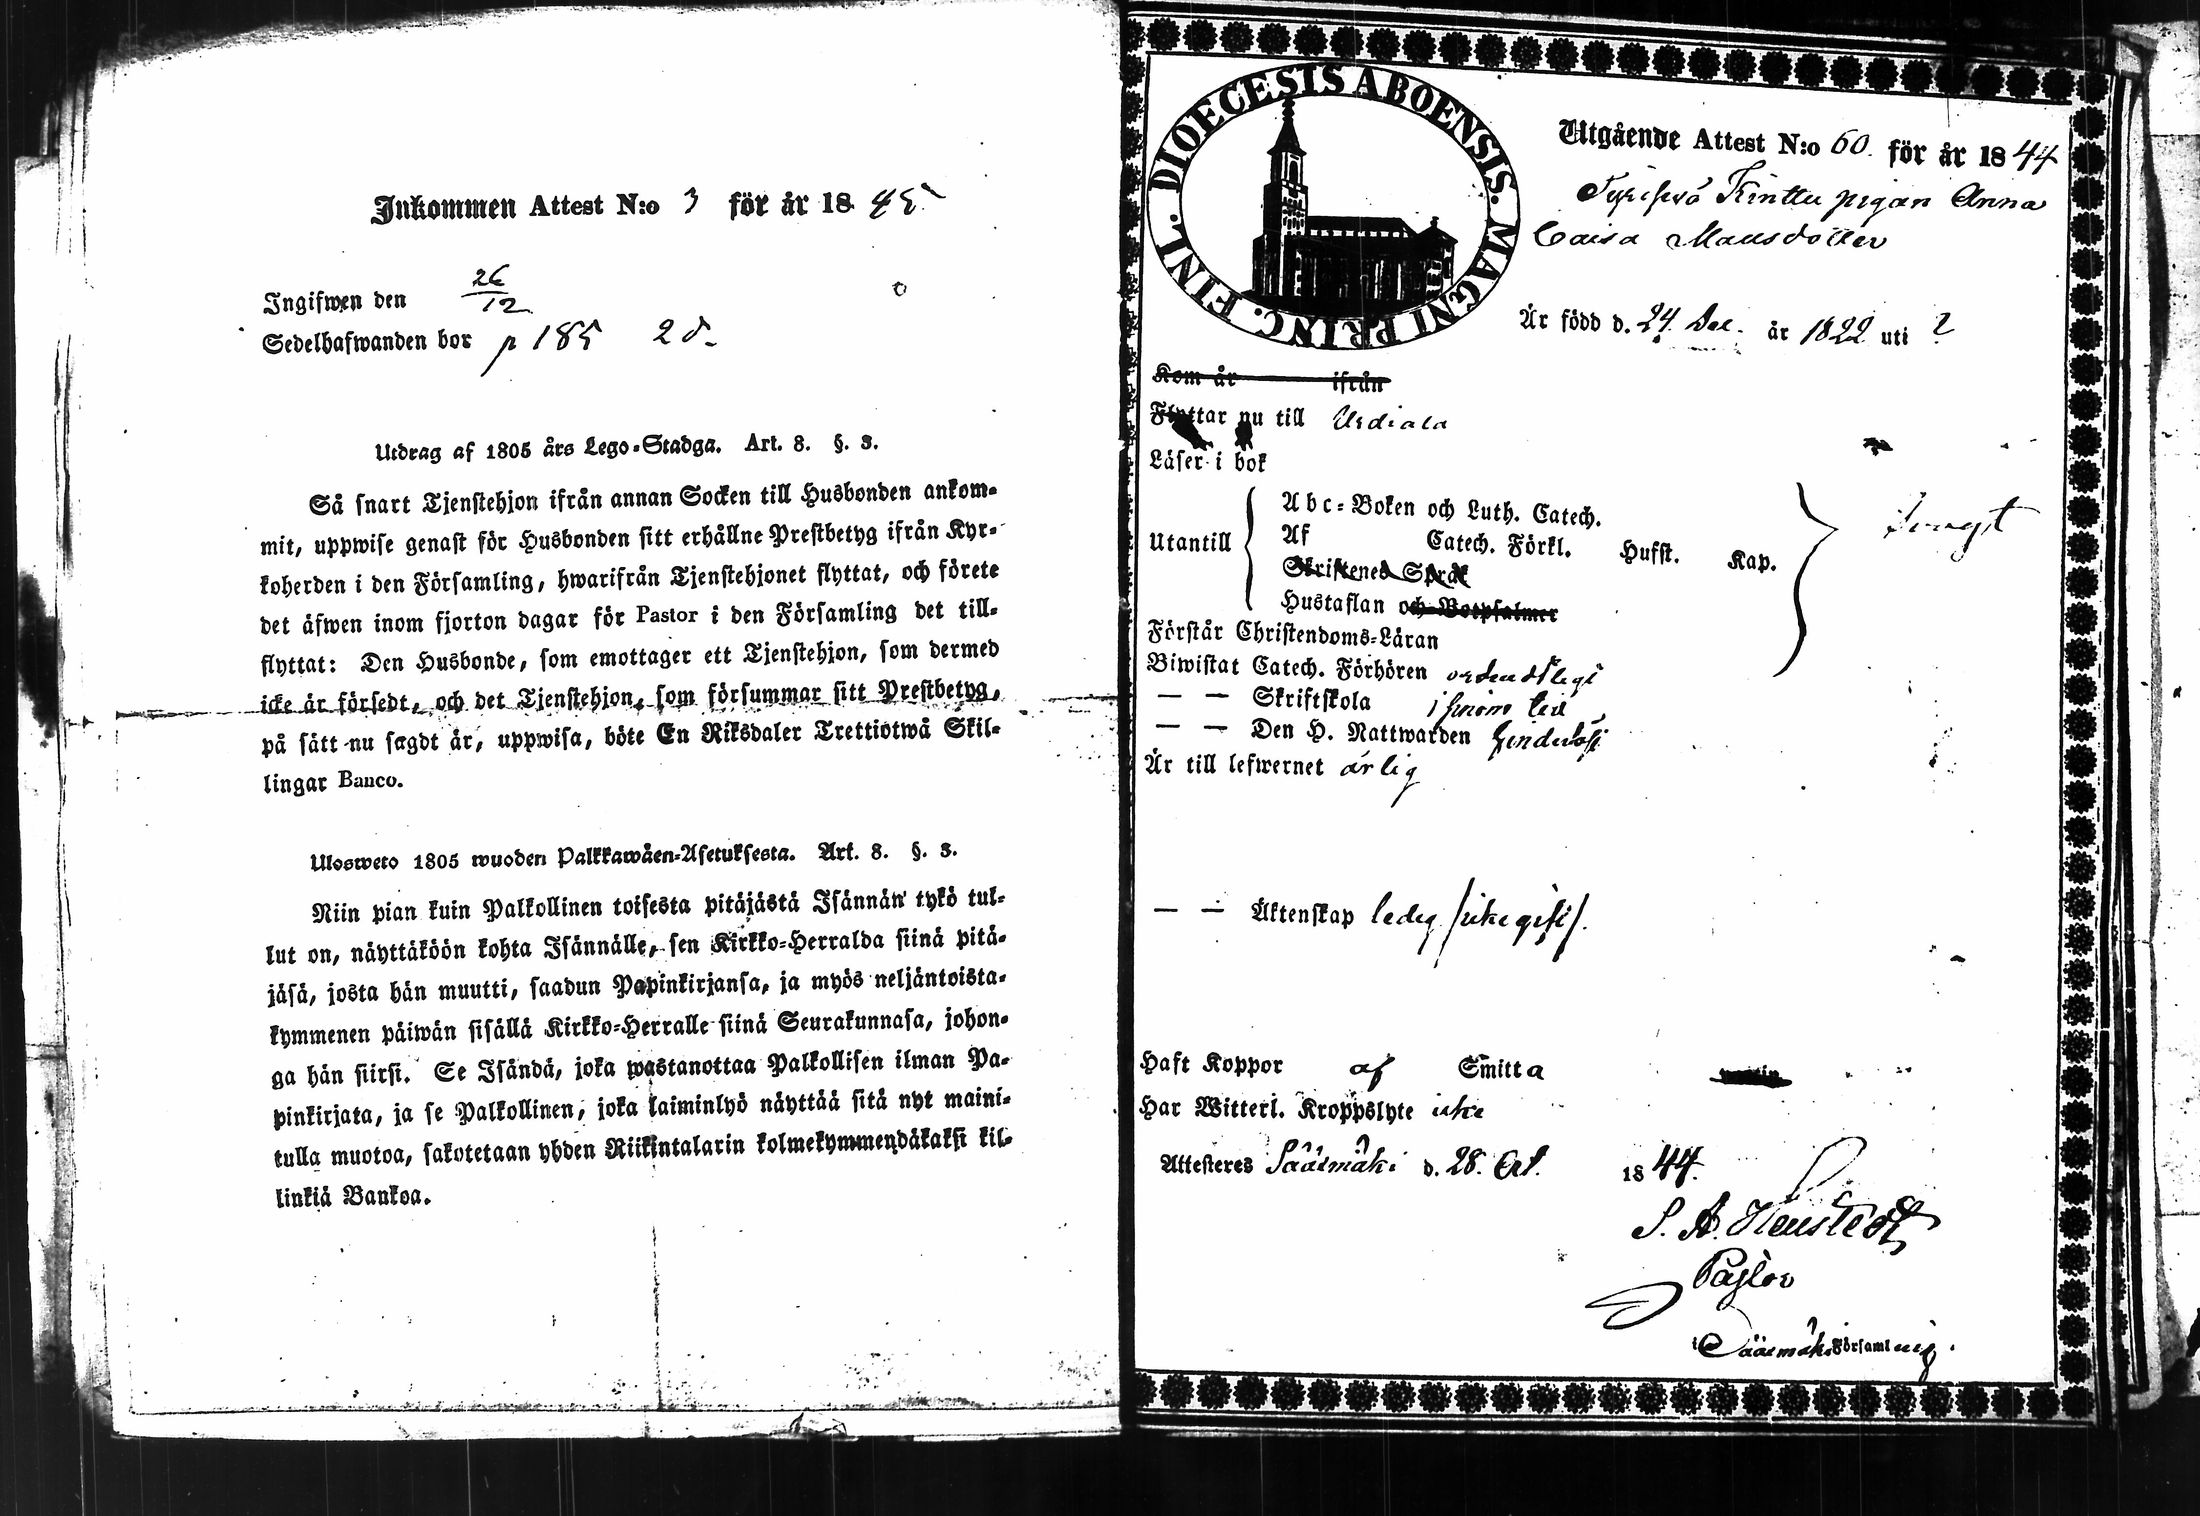 Inkommen Attest N:o 3 för år 18 45
Ingifwen den 26/12
Sedelhafwanden bor p 185 2 d.
Utdrag af 1805 års Lego-Stadga. Art. 8. §. 3.
Så snart Tjenstehjon ifrån annan Socken till Husbonden ankom-
mit, uppwise genast för Husbonden sitt erhållne Prestbetyg ifrån Kyr-
koherden i den Församling, hwarifrån Tjenstehjonet flyttat, och förete
det äfwen inom fjorton dagar för Pastor i den Församling det till-
flyttat: Den Husbonde, som emottager ett Tjenstehjon, som dermed
icke är försedt, och det Tjenstehjon, som försummar sitt Prestbetyg,
på sätt nu sagdt är, uppwisa, böte En Riksdaler Trettiotwå Skil-
lingar Banco.
Ulosweto 1805 wuoden Palkkawäen-Asetuksesta. Art. 8. §. 3.
Niin pian kuin Palkollinen toisesta pitäjästä Isännän tykö tul-
lut on, näyttäköön kohta Isännälle, sen Kirkko-Herralda siinä pitä-
jäsä, josta hän muutti, saadun Papinkirjansa, ja myös neljäntoista-
kymmenen päiwän sisällä Kirkko-Herralle siinä Seurakunnasa, johon-
ga hän siirsi. Se Isändä, joka wastanottaa Palkollisen ilman Pa-
pinkirjata, ja se Palkollinen, joka laiminlyö näyttää sitä nyt maini-
tulla muotoa, sakotetaan yhden Riikintalarin kolmekymmendäkaksi kil-
linkiä Bankoa.
DIOECESIS ABOENSIS. MAGNI PRINC. FINL.
Utgående Attest N:o 60. för år 18 44
Kinttu pigan Anna
Caisa Mattsdotter
Är född d. 24. Dec. år 1822 uti ?
Kom år ifrån
Flyttar nu till Urdiala
Läser i bok
Utantill
Abc-Boken och Luth. Catech.
Af Catech. Förkl. Hufst. Kap.
Skriftenes Språk
Hustaflan och Botpsalmer
Svagt
Förstår Christendoms-Läran
Biwistat Catech. Förhören ordentligt
— — Skriftskola i sinom tid
— — Den H. Nattwarden
Är till lefwernet ärlig
— — Äktenskap ledig /icke gift/.
Haft Koppor af Smitta
Har Witterl. Kroppslyte icke
Attesteres Sääxmäki d. 28. Oct. 1844.
Pastor
i Sääxmäki Församling.